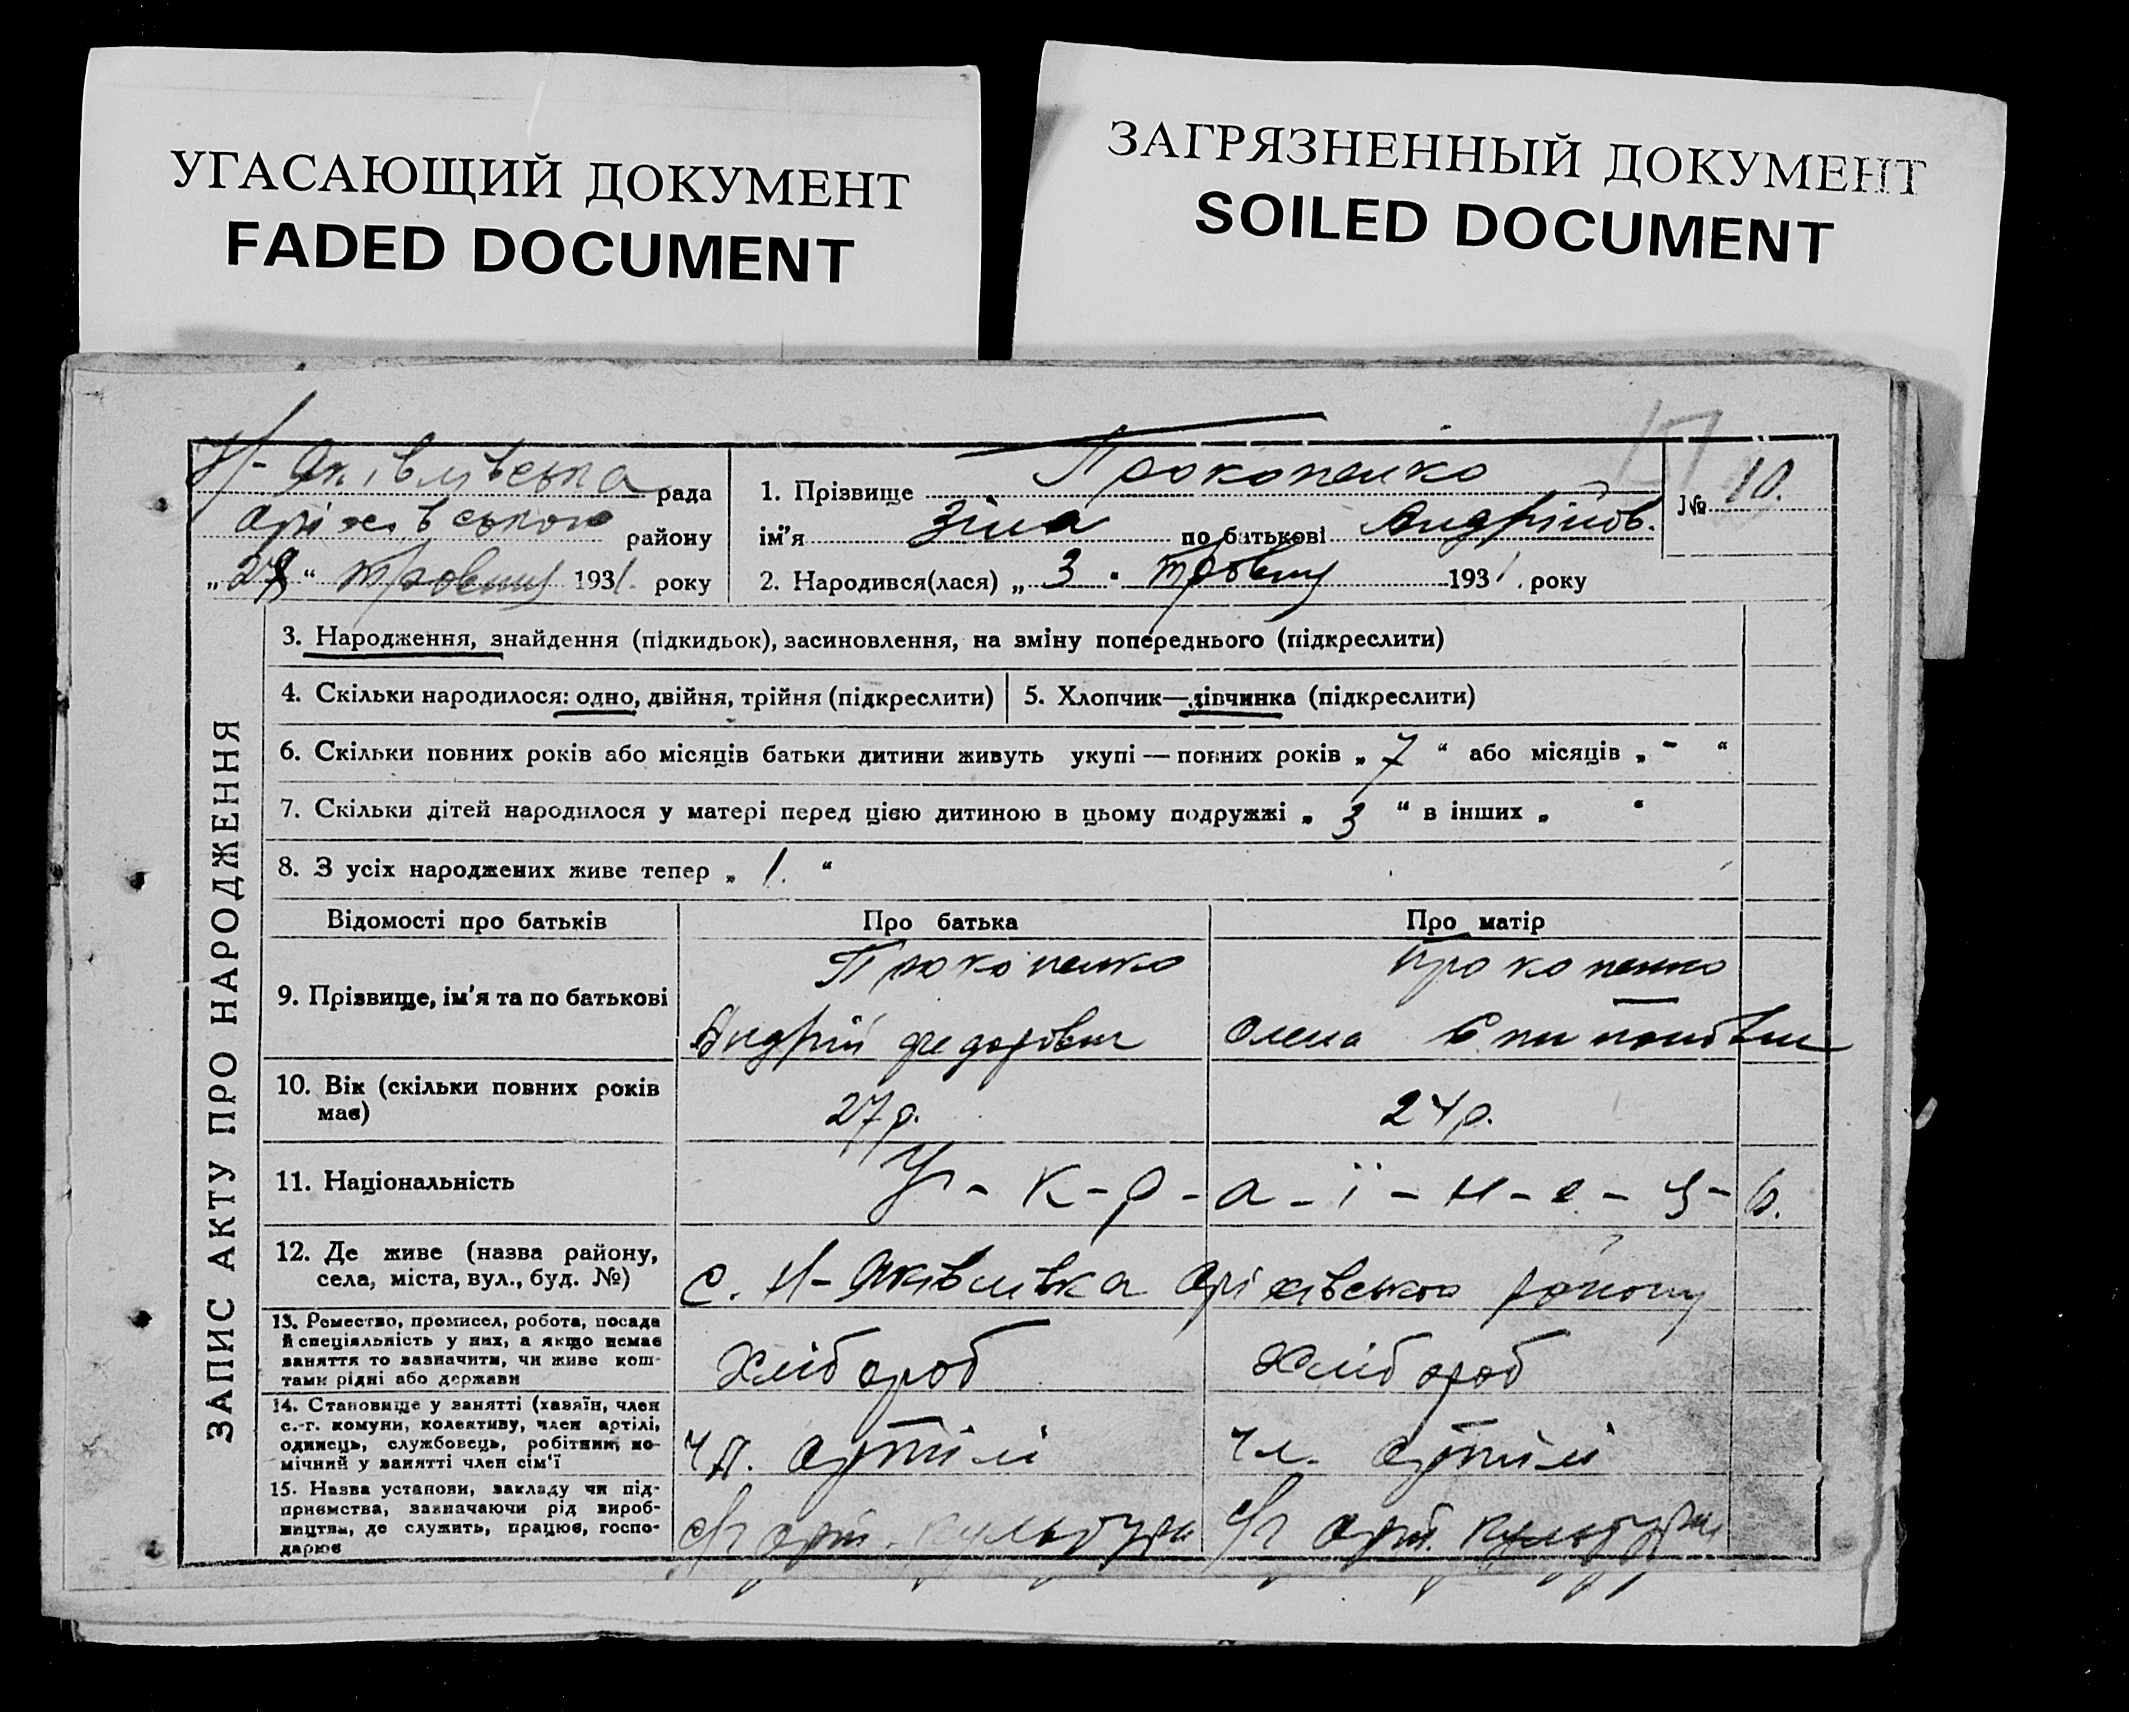 УГАСАЮЩИЙ ДОКУМЕНТ
FADED DOCUMENT
ЗАГРЯЗНЕННЫЙ ДОКУМЕНТ
SOILED DOCUMENT
Н-Яківлівська рада
Оріхівського району
„28“ травня 1931. року
1. Прізвище Прокопенко
ім'я Зіна по батькові Андріїов.
2. Народився(лася) „3“ травня 1931. року
№ 10.
ЗАПИС АКТУ ПРО НАРОДЖЕННЯ
3. Народження, знайдення (підкидьок), засиновлення, на зміну попереднього (підкреслити)
4. Скільки народилося: одно, двійня, трійня (підкреслити)
5. Хлопчик—дівчинка (підкреслити)
6. Скільки повних років або місяців батьки дитини живуть укупі — повних років „7“ або місяців „-“
7. Скільки дітей народилося у матері перед цією дитиною в цьому подружжі „3“ в інших „ “
8. З усіх народжених живе тепер „1.“
Відомості про батьків Про батька Про матір
9. Прізвище, ім'я та по батькові
Прокопенко
Андрій Федорович
Прокопенко
Олена
10. Вік (скільки повних років має)
27 р.
24 р.
11. Національність
У-к-р-а-ї-н-е-ц-ь.
12. Де живе (назва району, села, міста, вул., буд. №)
с. Н-Яківлівка Оріхівського району
13. Ремество, промисел, робота, посада й спеціяльність у них, а якщо немає заняття то зазначити, чи живе коштами рідні або держави
Хлібороб
Хлібороб
14. Становище у занятті (хазяїн, член с.-г. комуни, колективу, член артілі, одинець, службовець, робітник, помічний у занятті член сім'ї
чл. артілі
чл. артілі
15. Назва установи, закладу чи підприємства, зазначаючи рід виробництва, де служить, працює, господарює
с/г арт. культури
с/г арт. культури